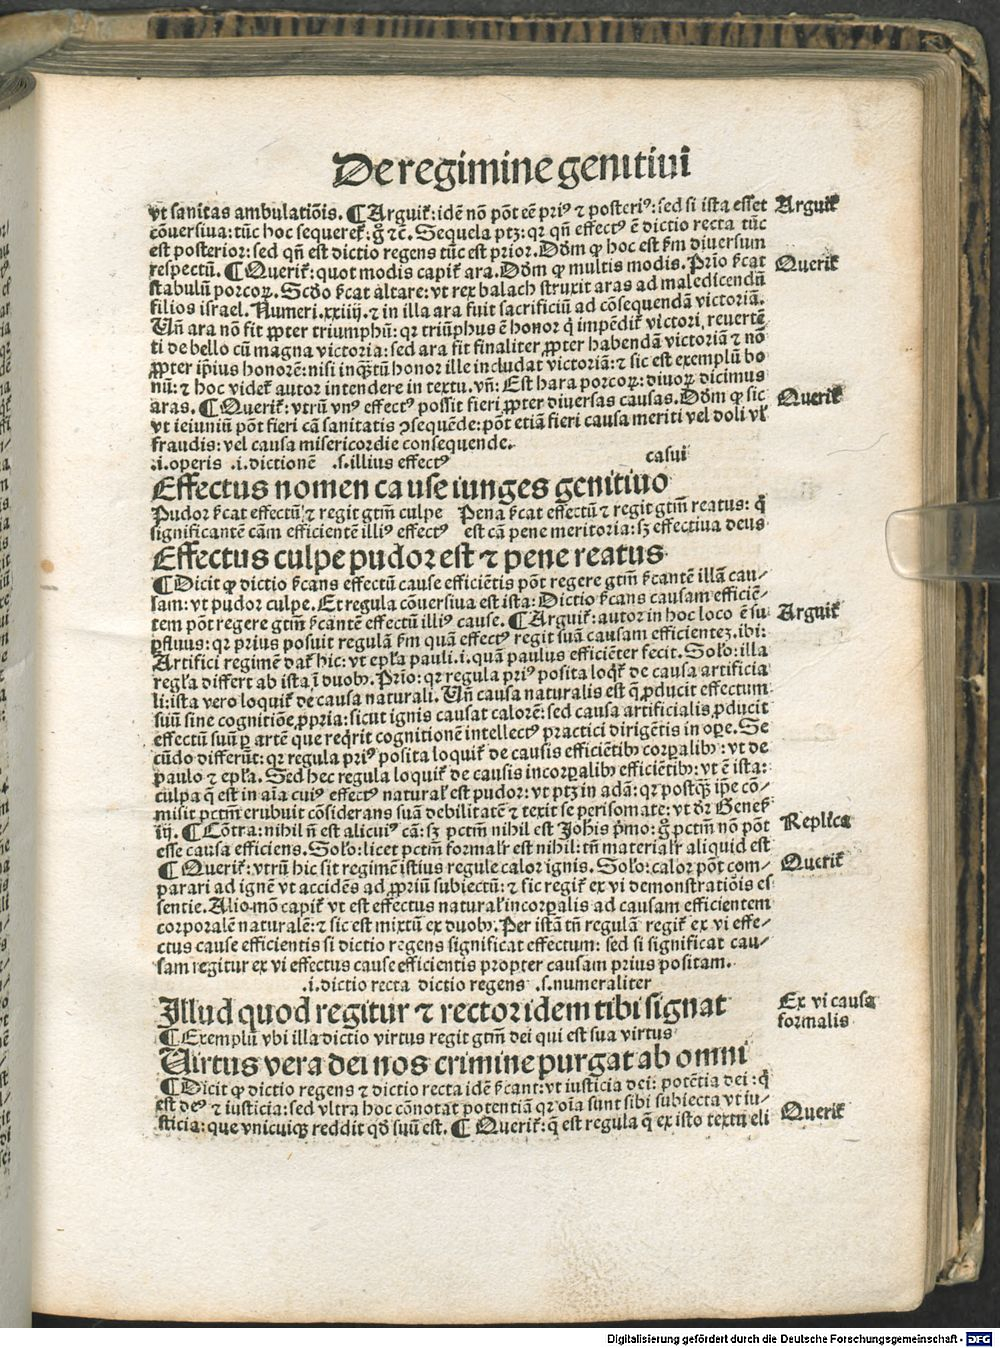 De regimine genitiui
vt sanitas ambulatiōis. ¶ Arguit᷑: idē nō pōt eē priꝰ ⁊ posteriꝰ: sed si ista esset
cōuersiua: tūc hoc sequeret᷑: g̊ ⁊c̄. Sequela ptꝫ: qꝛ qn̄ effectꝰ ē dictio recta tūc
est posterior: sed qn̄ est dictio regens tūc est prior. Dōm ꝙ hoc est ẜm diuersum
respectū. ¶ Querit᷑: quot modis capit᷑ ara. Dōm ꝙ multis modis. Prīo ẜcat
stabulū porcoꝝ. Scd̄o ẜcat altare: vt rex balach struxit aras ad maledicendū
filios israel. Numeri. xxiiij. ⁊ in illa ara fuit sacrificiū ad cōsequendā victoriā.
Vn̄ ara nō fit ꝓpter triumphū: qꝛ triūphus ē honor q̇ impēdit᷑ victori, reuertē
ti de bello cū magna victoria: sed ara fit finaliter ꝓpter habendā victoriā ⁊ nō
ꝓpter ip̄ius honorē: nisi inqͣꝫtū honor ille includat victoriā: ⁊ sic est exemplū bo
nū: ⁊ hoc videt᷑ autor intendere in textu. vn̄: Est hara porcoꝝ: diuoꝝ dicimus
aras. ¶ Querit᷑: vtrū vnꝰ effectꝰ possit fieri ꝓpter diuersas causas. Dōm ꝙ sic
vt ieiuniū pōt fieri cā sanitatis ꝯsequēde: pōt etiā fieri causa meriti vel doli vl᷑
fraudis: vel causa misericordie consequende.
.i. operis .i. dictionē .s. illius effectꝰ casui
Effectus nomen cause iunges genitiuo
Pudor ẜcat effectū ⁊ regit gtm̄ culpe Pena ẜcat effectū ⁊ regit gtm̄ reatus: q̇
significantē cām efficientē illiꝰ effectꝰ est cā pene meritoria: sꝫ effectiua deus
Effectus culpe pudor est ⁊ pene reatus
¶ Dicit ꝙ dictio ẜcans effectū cause efficiētis pōt regere gtm̄ ẜcantē illā cau-
sam: vt pudor culpe. Et regula cōuersiua est ista: Dictio ẜcans causam efficiē-
tem pōt regere gtm̄ ẜcantē effectū illiꝰ cause. ¶ Arguit᷑: autor in hoc loco ē su
ꝑfluus: qꝛ prius posuit regulā ẜm quā effectꝰ regit suā causam efficientez. ibi:
Artifici regimē dat᷑ hic: vt epl̄a pauli. i. quā paulus efficiēter fecit. Solo᷑: illa
regl̄a differt ab ista ī duobꝰ. Prīo: qꝛ regula priꝰ posita loqͥt᷑ de causa artificia
li: ista vero loquit᷑ de causa naturali. Vn̄ causa naturalis est q̄ ꝓducit effectum
suū sine cognitiōe ꝓpria: sicut ignis causat calorē: sed causa artificialis ꝓducit
effectū suū ꝑ artē que reqͥrit cognitionē intellectꝰ practici dirigētis in oꝑe. Se
cūdo differūt: qꝛ regula priꝰ posita loquit᷑ de causis efficiētibꝰ corꝑalibꝰ: vt de
paulo ⁊ epl̄a. Sed hec regula loquit᷑ de causis incorꝑalibꝰ efficiētibꝰ: vt ē ista:
culpa q̄ est in aīa cuiꝰ effectꝰ natural᷑ est pudor: vt ptꝫ in adā: qꝛ postqͣꝫ ip̄e cō-
misit pctm̄ erubuit cōsiderans suā debilitatē ⁊ texit se perisomate: vt dr̄ Geneẜ
iij. ¶ Cōtra: nihil n̄ est alicuiꝰ cā: sꝫ pctm̄ nihil est Joh̄is pͥmo: g̊ pctm̄ nō pōt
esse causa efficiens. Solo᷑: licet pctm̄ formalr̄ est nihil: tn̄ materialr̄ aliquid est
¶ Querit᷑: vtrū hic sit regimē istius regule calor ignis. Solo᷑: calor pōt com-
parari ad ignē vt accidēs ad ꝓpriū subiectū: ⁊ sic regit᷑ ex vi demonstratiōis es
sentie. Alio mō capit᷑ vt est effectus natural᷑ incorꝑalis ad causam efficientem
corporalē naturalē: ⁊ sic est mixtū ex duobꝰ. Per istā tn̄ regulā regit᷑ ex vi effe-
ctus cause efficientis si dictio regens significat effectum: sed si significat cau-
sam regitur ex vi effectus cause efficientis propter causam prius positam.
.i. dictio recta dictio regens .s. numeraliter
Illud quod regitur ⁊ rector idem tibi signat
¶ Exemplū vbi illa dictio virtus regit gtm̄ dei qui est sua virtus
Virtus vera dei nos crimine purgat ab omni
¶ Dicit ꝙ dictio regens ⁊ dictio recta idē ẜcant: vt iusticia dei: potētia dei: q̇
est deꝰ ⁊ iusticia: sed vltra hoc cōnotat potentiā qꝛ oīa sunt sibi subiecta vt iu-
sticia: que vnicuiqꝫ reddit qd̄ suū est. ¶ Querit᷑: q̄ est regula q̄ ex isto textu eli
Arguit᷑
Querit᷑
Querit᷑
Arguit᷑
Replica
Querit᷑
Ex vi cause
formalis
Querit᷑
Digitalisierung gefördert durch die Deutsche Forschungsgemeinschaft - DFG